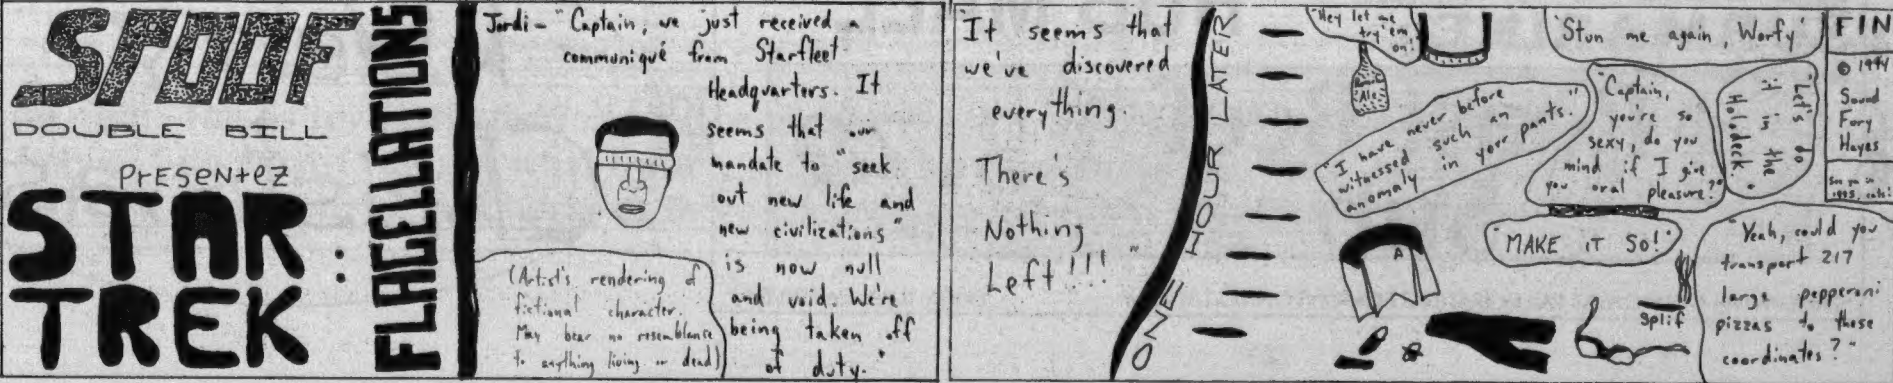 SPOOF
DOUBLE BILL
PrESeNtEZ
STAR
TREK:
FLAGELLATIONS
Jordi - "Captain, we just received a
communiqué from Starfleet
Headquarters. It
seems that our
mandate to "seek
out new life and
new civilizations"
is now null
and void. We're
being taken off
of duty."
(Artist's rendering of
fictional character.
May bear no resemblance
to anything living or dead)
"It seems that
we've discovered
everything.
There's
Nothing
Left!!!"
ONE HOUR LATER
"Hey let me
try 'em
on!"
Ale
"Stun me again, Worfy"
"I have never before
witnessed such an
anomaly in your pants."
"Captain,
you're so
sexy, do you
mind if I give
you oral pleasure?"
"Let's do
it in the
Holodeck."
"MAKE iT SO!"
A
Splif
"Yeah, could you
transport 217
large pepperoni
pizzas to these
coordinates?"
FIN
© 1994
Sound
Fury
Hayes
See you in
1995,